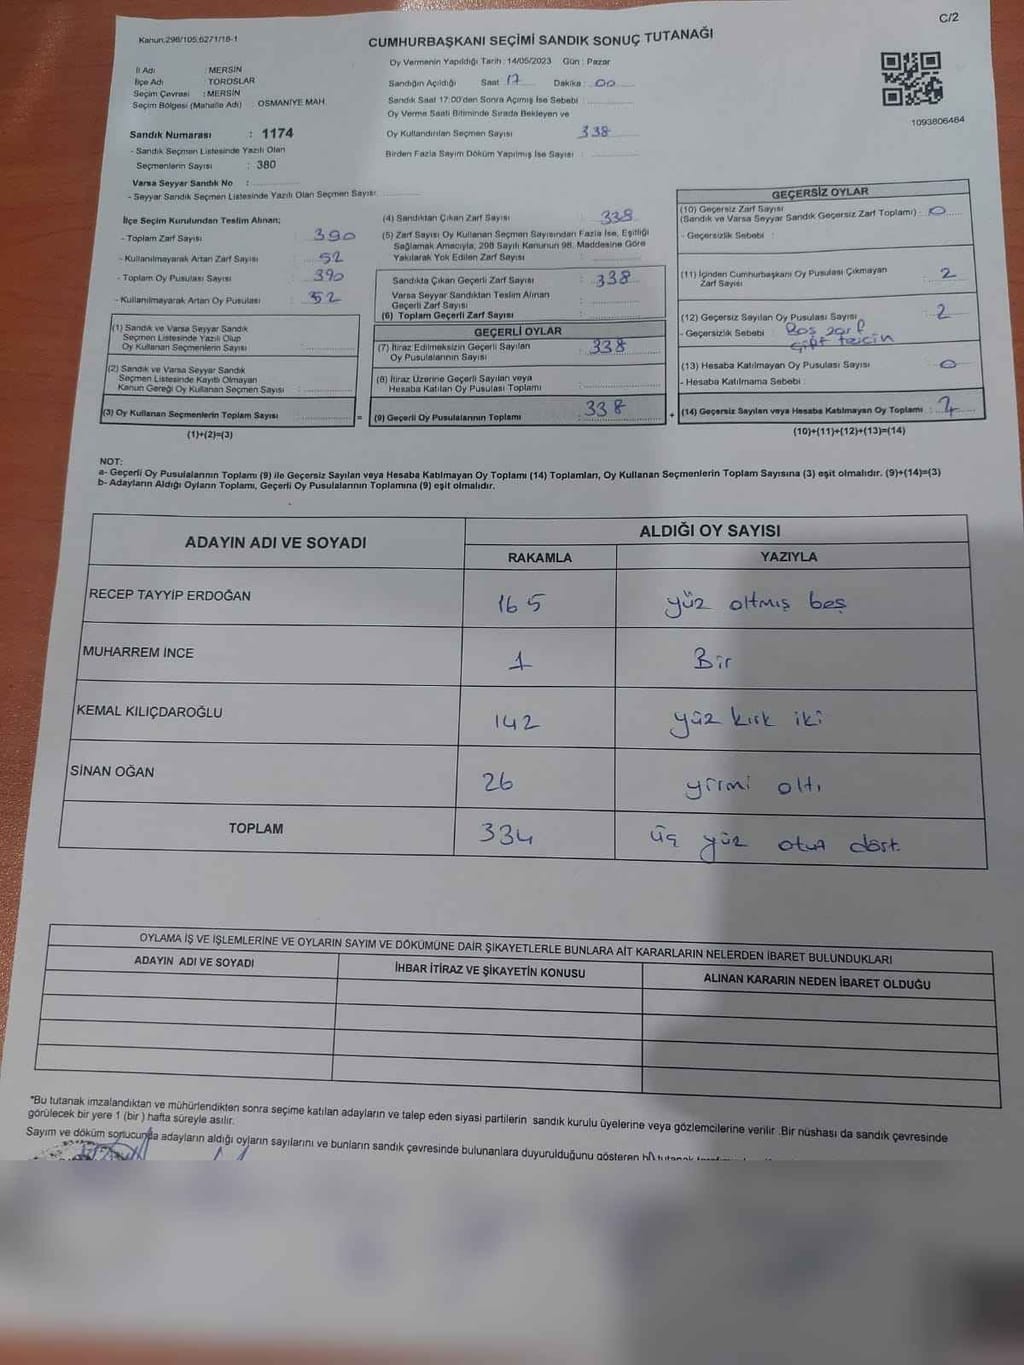 C/2
Kanun:298/105;6271/18-1
CUMHURBAŞKANI SEÇİMİ SANDIK SONUÇ TUTANAĞI
İl Adı : MERSİN
İlçe Adı : TOROSLAR
Seçim Çevresi : MERSİN
Seçim Bölgesi (Mahalle Adı) : OSMANİYE MAH.
Sandık Numarası : 1174
- Sandık Seçmen Listesinde Yazılı Olan
Seçmenlerin Sayısı : 380
Varsa Seyyar Sandık No :
- Seyyar Sandık Seçmen Listesinde Yazılı Olan Seçmen Sayısı:
Oy Vermenin Yapıldığı Tarih : 14/05/2023 Gün : Pazar
Sandığın Açıldığı Saat 17 Dakika : 00
Sandık Saat 17:00'den Sonra Açımış İse Sebebi :
Oy Verme Saati Bitiminde Sırada Bekleyen ve
Oy Kullandırılan Seçmen Sayısı : 338
Birden Fazla Sayım Döküm Yapılmış İse Sayısı :
1093806464
İlçe Seçim Kurulundan Teslim Alınan;
- Toplam Zarf Sayısı : 390
- Kullanılmayarak Artan Zarf Sayısı : 52
- Toplam Oy Pusulası Sayısı : 390
- Kullanılmayarak Artan Oy Pusulası : 52
(1) Sandık ve Varsa Seyyar Sandık
Seçmen Listesinde Yazılı Olup
Oy Kullanan Seçmenlerin Sayısı :
(2) Sandık ve Varsa Seyyar Sandık
Seçmen Listesinde Kayıtlı Olmayan
Kanun Gereği Oy Kullanan Seçmen Sayısı :
(3) Oy Kullanan Seçmenlerin Toplam Sayısı : =
(1)+(2)=(3)
(4) Sandıktan Çıkan Zarf Sayısı : 338
(5) Zarf Sayısı Oy Kullanan Seçmen Sayısından Fazla İse, Eşitliği
Sağlamak Amacıyla, 298 Sayılı Kanunun 98. Maddesine Göre
Yakılarak Yok Edilen Zarf Sayısı :
Sandıkta Çıkan Geçerli Zarf Sayısı : 338
Varsa Seyyar Sandıktan Teslim Alınan
Geçerli Zarf Sayısı :
(6) Toplam Geçerli Zarf Sayısı :
GEÇERLİ OYLAR
(7) İtiraz Edilmeksizin Geçerli Sayılan
Oy Pusulalarının Sayısı : 338
(8) İtiraz Üzerine Geçerli Sayılan veya
Hesaba Katılan Oy Pusulası Toplamı :
(9) Geçerli Oy Pusulalarının Toplamı : 338 +
GEÇERSİZ OYLAR
(10) Geçersiz Zarf Sayısı
(Sandık ve Varsa Seyyar Sandık Geçersiz Zarf Toplamı) : 0
- Geçersizlik Sebebi :
(11) İçinden Cumhurbaşkanı Oy Pusulası Çıkmayan
Zarf Sayısı : 2
(12) Geçersiz Sayılan Oy Pusulası Sayısı : 2
- Geçersizlik Sebebi : Boş zarf
çift tercin
(13) Hesaba Katılmayan Oy Pusulası Sayısı : 0
- Hesaba Katılmama Sebebi :
(14) Geçersiz Sayılan veya Hesaba Katılmayan Oy Toplamı :
(10)+(11)+(12)+(13)=(14)
NOT:
a- Geçerli Oy Pusulalarının Toplamı (9) ile Geçersiz Sayılan veya Hesaba Katılmayan Oy Toplamı (14) Toplamları, Oy Kullanan Seçmenlerin Toplam Sayısına (3) eşit olmalıdır. (9)+(14)=(3)
b- Adayların Aldığı Oyların Toplamı, Geçerli Oy Pusulalarının Toplamına (9) eşit olmalıdır.
ADAYIN ADI VE SOYADI
ALDIĞI OY SAYISI
RAKAMLA YAZIYLA
RECEP TAYYİP ERDOĞAN 165 yüz altmış beş
MUHARREM İNCE 1 Bir
KEMAL KILIÇDAROĞLU 142 yüz kırk iki
SİNAN OĞAN 26 yirmi altı
TOPLAM 334 üç yüz otuz dört.
OYLAMA İŞ VE İŞLEMLERİNE VE OYLARIN SAYIM VE DÖKÜMÜNE DAİR ŞİKAYETLERLE BUNLARA AİT KARARLARIN NELERDEN İBARET BULUNDUKLARI
ADAYIN ADI VE SOYADI İHBAR İTİRAZ VE ŞİKAYETİN KONUSU ALINAN KARARIN NEDEN İBARET OLDUĞU
*Bu tutanak imzalandıktan ve mühürlendikten sonra seçime katılan adayların ve talep eden siyasi partilerin sandık kurulu üyelerine veya gözlemcilerine verilir .Bir nüshası da sandık çevresinde
görülecek bir yere 1 (bir ) hafta süreyle asılır.
Sayım ve döküm sonucunda adayların aldığı oyların sayılarını ve bunların sandık çevresinde bulunanlara duyurulduğunu gösteren bu tutanak